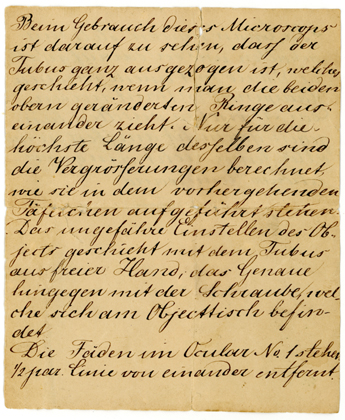 Beim Gebrauch dieses Microscops
ist darauf zu sehen, dass der
Tubus ganz ausgezogen ist, welches
geschieht, wenn man die beiden
obern geränderten Ringe aus-
einander zieht. Nur für die
höchste Länge desselben sind
die Vergrösserungen berechnet,
wie sie in dem vorhergehenden
Täfelchen aufgeführt stehen.
Das ungefähre Einstellen des Ob-
jects geschieht mit dem Tubus
aus freier Hand, das Genaue
hingegen mit der Schraube, wel-
che sich am Objecttisch befin-
det.
Die Fäden im Ocular No. 1 stehen
½ par. Linie von einander entfernt.